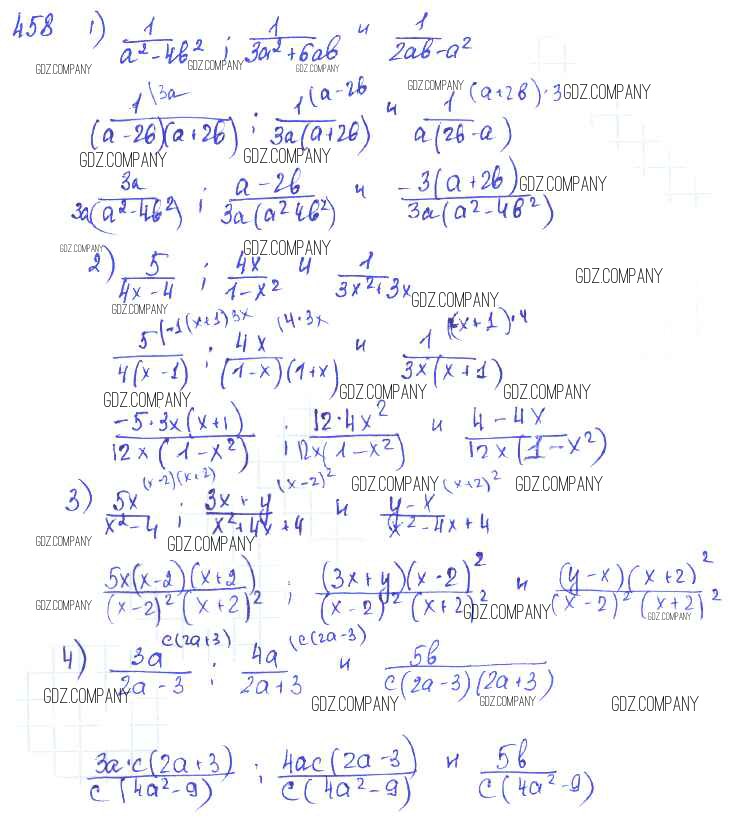 458 1) 1/(a²-4b²) ; 1/(3a²+6ab) и 1/(2ab-a²)
GDZ.COMPANY GDZ.COMPANY GDZ.COMPANY
1\3a/((a-2b)(a+2b)) ; 1(a-2b/(3a(a+2b)) и 1(a+2b)·3/(a(2b-a))
GDZ.COMPANY GDZ.COMPANY
GDZ.COMPANY GDZ.COMPANY
3a/(3a(a²-4b²)) ; (a-2b)/(3a(a²4b²)) и -3(a+2b)/(3a(a²-4b²))
GDZ.COMPANY
GDZ.COMPANY GDZ.COMPANY
2) 5/(4x-4) ; 4x/(1-x²) и 1/(3x²+3x)
GDZ.COMPANY
GDZ.COMPANY GDZ.COMPANY
5(-1(x+1)3x/(4(x-1)) ; 4x(4·3x/((1-x)(1+x)) и 1(x+1)·4/(3x(x+1))
GDZ.COMPANY GDZ.COMPANY GDZ.COMPANY
-5·3x(x+1)/(12x(1-x²)) ; 12·4x²/(12x(1-x²)) и (4-4x)/(12x(1-x²))
3) 5x(x-2)(x+2)/(x²-4) ; (3x+y)(x-2)²/(x²+4x+4) и (y-x)(x+2)²/(x²-4x+4)
GDZ.COMPANY GDZ.COMPANY
GDZ.COMPANY GDZ.COMPANY
5x(x-2)(x+2)/((x-2)²(x+2)²) ; (3x+y)(x-2)²/((x-2)²(x+2)²) и (y-x)(x+2)²/((x-2)²(x+2)²)
GDZ.COMPANY GDZ.COMPANY GDZ.COMPANY
4) 3a c(2a+3)/(2a-3) ; 4a(c(2a-3)/(2a+3) и 5b/(c(2a-3)(2a+3))
GDZ.COMPANY GDZ.COMPANY GDZ.COMPANY GDZ.COMPANY
3a·c(2a+3)/(c(4a²-9)) ; 4ac(2a-3)/(c(4a²-9)) и 5b/(c(4a²-9))